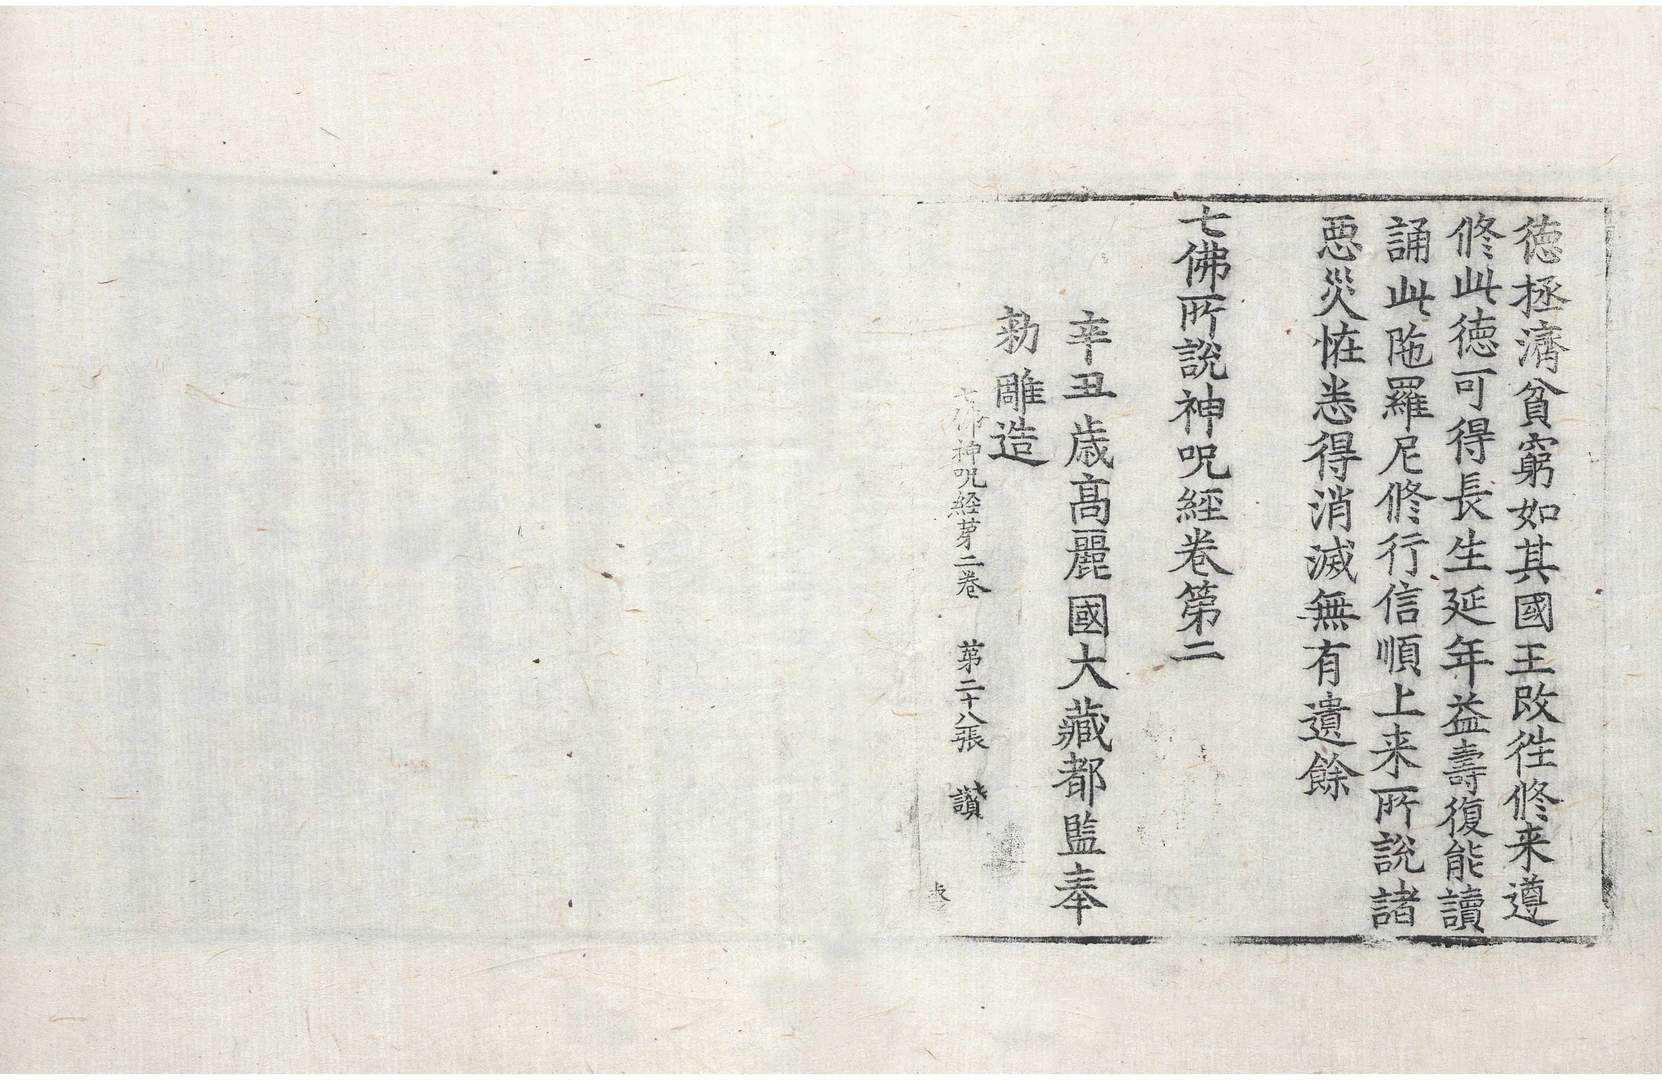 德拯濟貧窮如其國王改徃修来遵
修此德可得長生延年益壽復能讀
誦此陁羅尼修行信順上来所說諸
惡災恠悉得消滅無有遺餘
七佛所說神呪經卷第二
辛丑歲高麗國大藏都監奉
勑雕造
七佛神呪経苐二卷 苐二十八張 讚